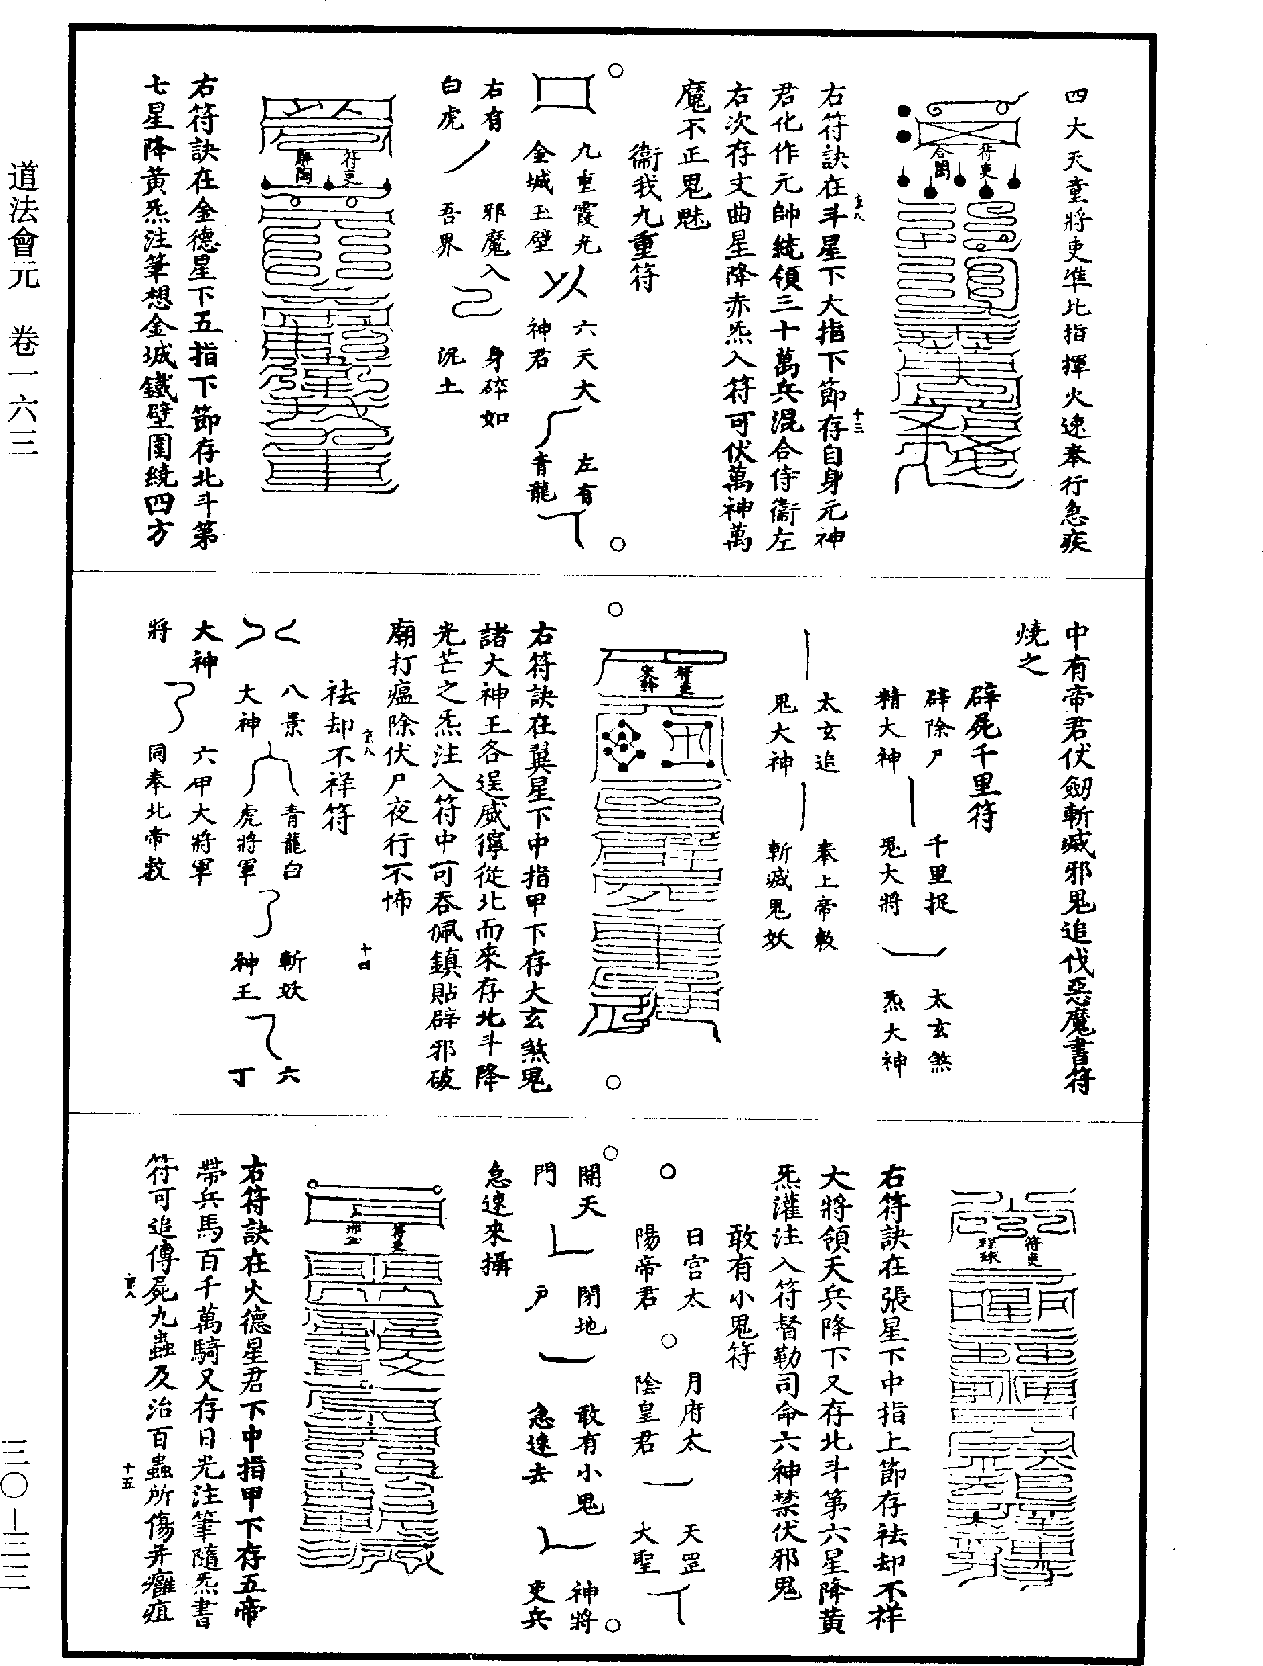 道法會元　卷一六三
四大天童將吏準此指揮火速奉行急疾
符吏
合明
右符訣在斗星下大指下節存自身元神
君化作元帥統領三十萬兵混合侍衞左
右次存文曲星降赤炁入符可伏萬神萬
魔不正鬼魅
衞我九重符
九重霞光
金城玉壁
六天大
神君
左有
青龍
右有
白虎
邪魔入
吾界
身碎如
泥土
符吏
右符訣在金德星下五指下節存北斗第
七星降黃炁注筆想金城鐵壁圍繞四方
中有帝君伏劒斬滅邪鬼追伐惡魔書符
燒之
辟屍千里符
辟除尸
精大神
千里捉
鬼大將
太玄煞
炁大神
太玄追
鬼大神
奉上帝敕
斬滅鬼妖
符吏
右符訣在翼星下中指甲下存大玄煞鬼
諸大神王各逞威獰從北而來存北斗降
光芒之炁注入符中可吞佩鎮貼辟邪破
廟打瘟除伏尸夜行不怖
十四
祛却不祥符
八景
大神
青龍白
虎將軍
斬妖
神王
六
丁
大神
六甲大將軍
將
同奉北帝敕
符吏
右符訣在張星下中指上節存祛却不祥
大將領天兵降下又存北斗第六星降黃
炁灌注入符督勒司命六神禁伏邪鬼
敢有小鬼符
日宮太
陽帝君
月府太
陰皇君
天罡
大聖
開天
門
閉地
戶
敢有小鬼
急速去
神將
吏兵
急速來攝
符吏
右符訣在火德星君下中指甲下存五帝
帶兵馬百千萬騎又存日光注筆隨炁書
符可追傳屍九蟲及治百蟲所傷并癰疽
十五
三〇—三二